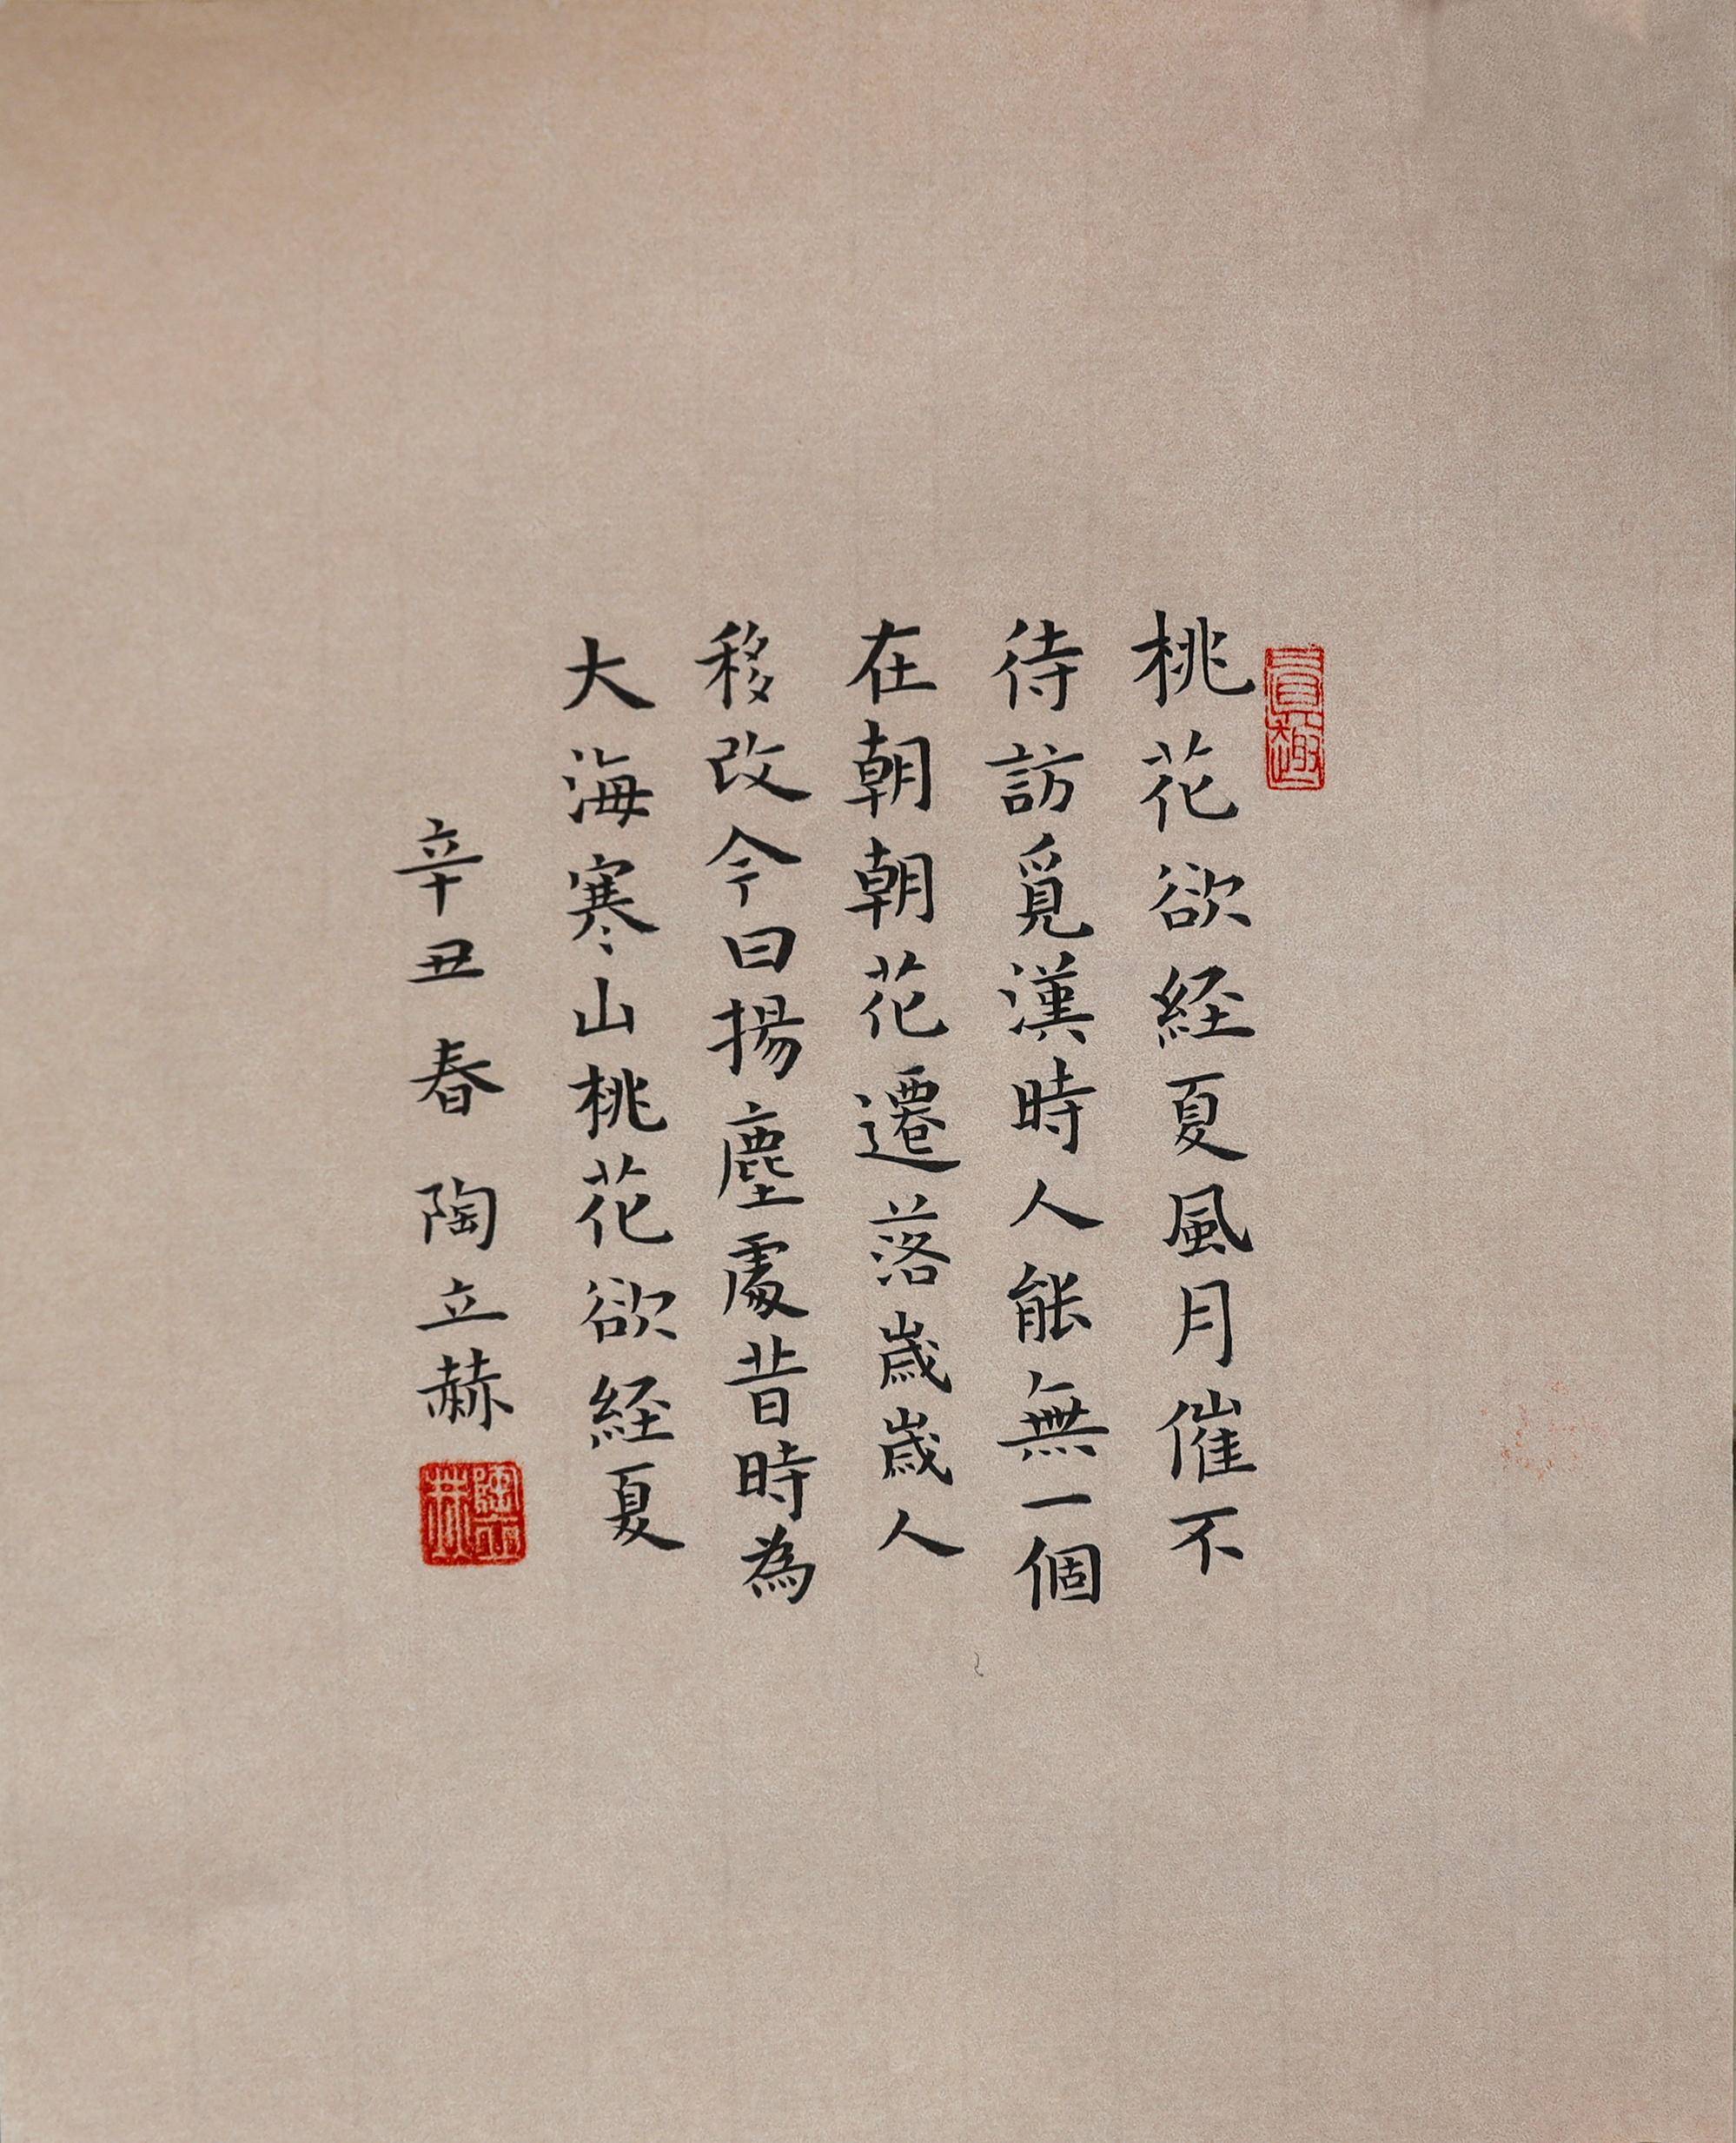 桃花欲経夏風月催不
待訪覓漢時人能無一個
在朝朝花遷落歲歲人
移改今日揚塵處昔時為
大海寒山桃花欲経夏
辛丑春陶立赫